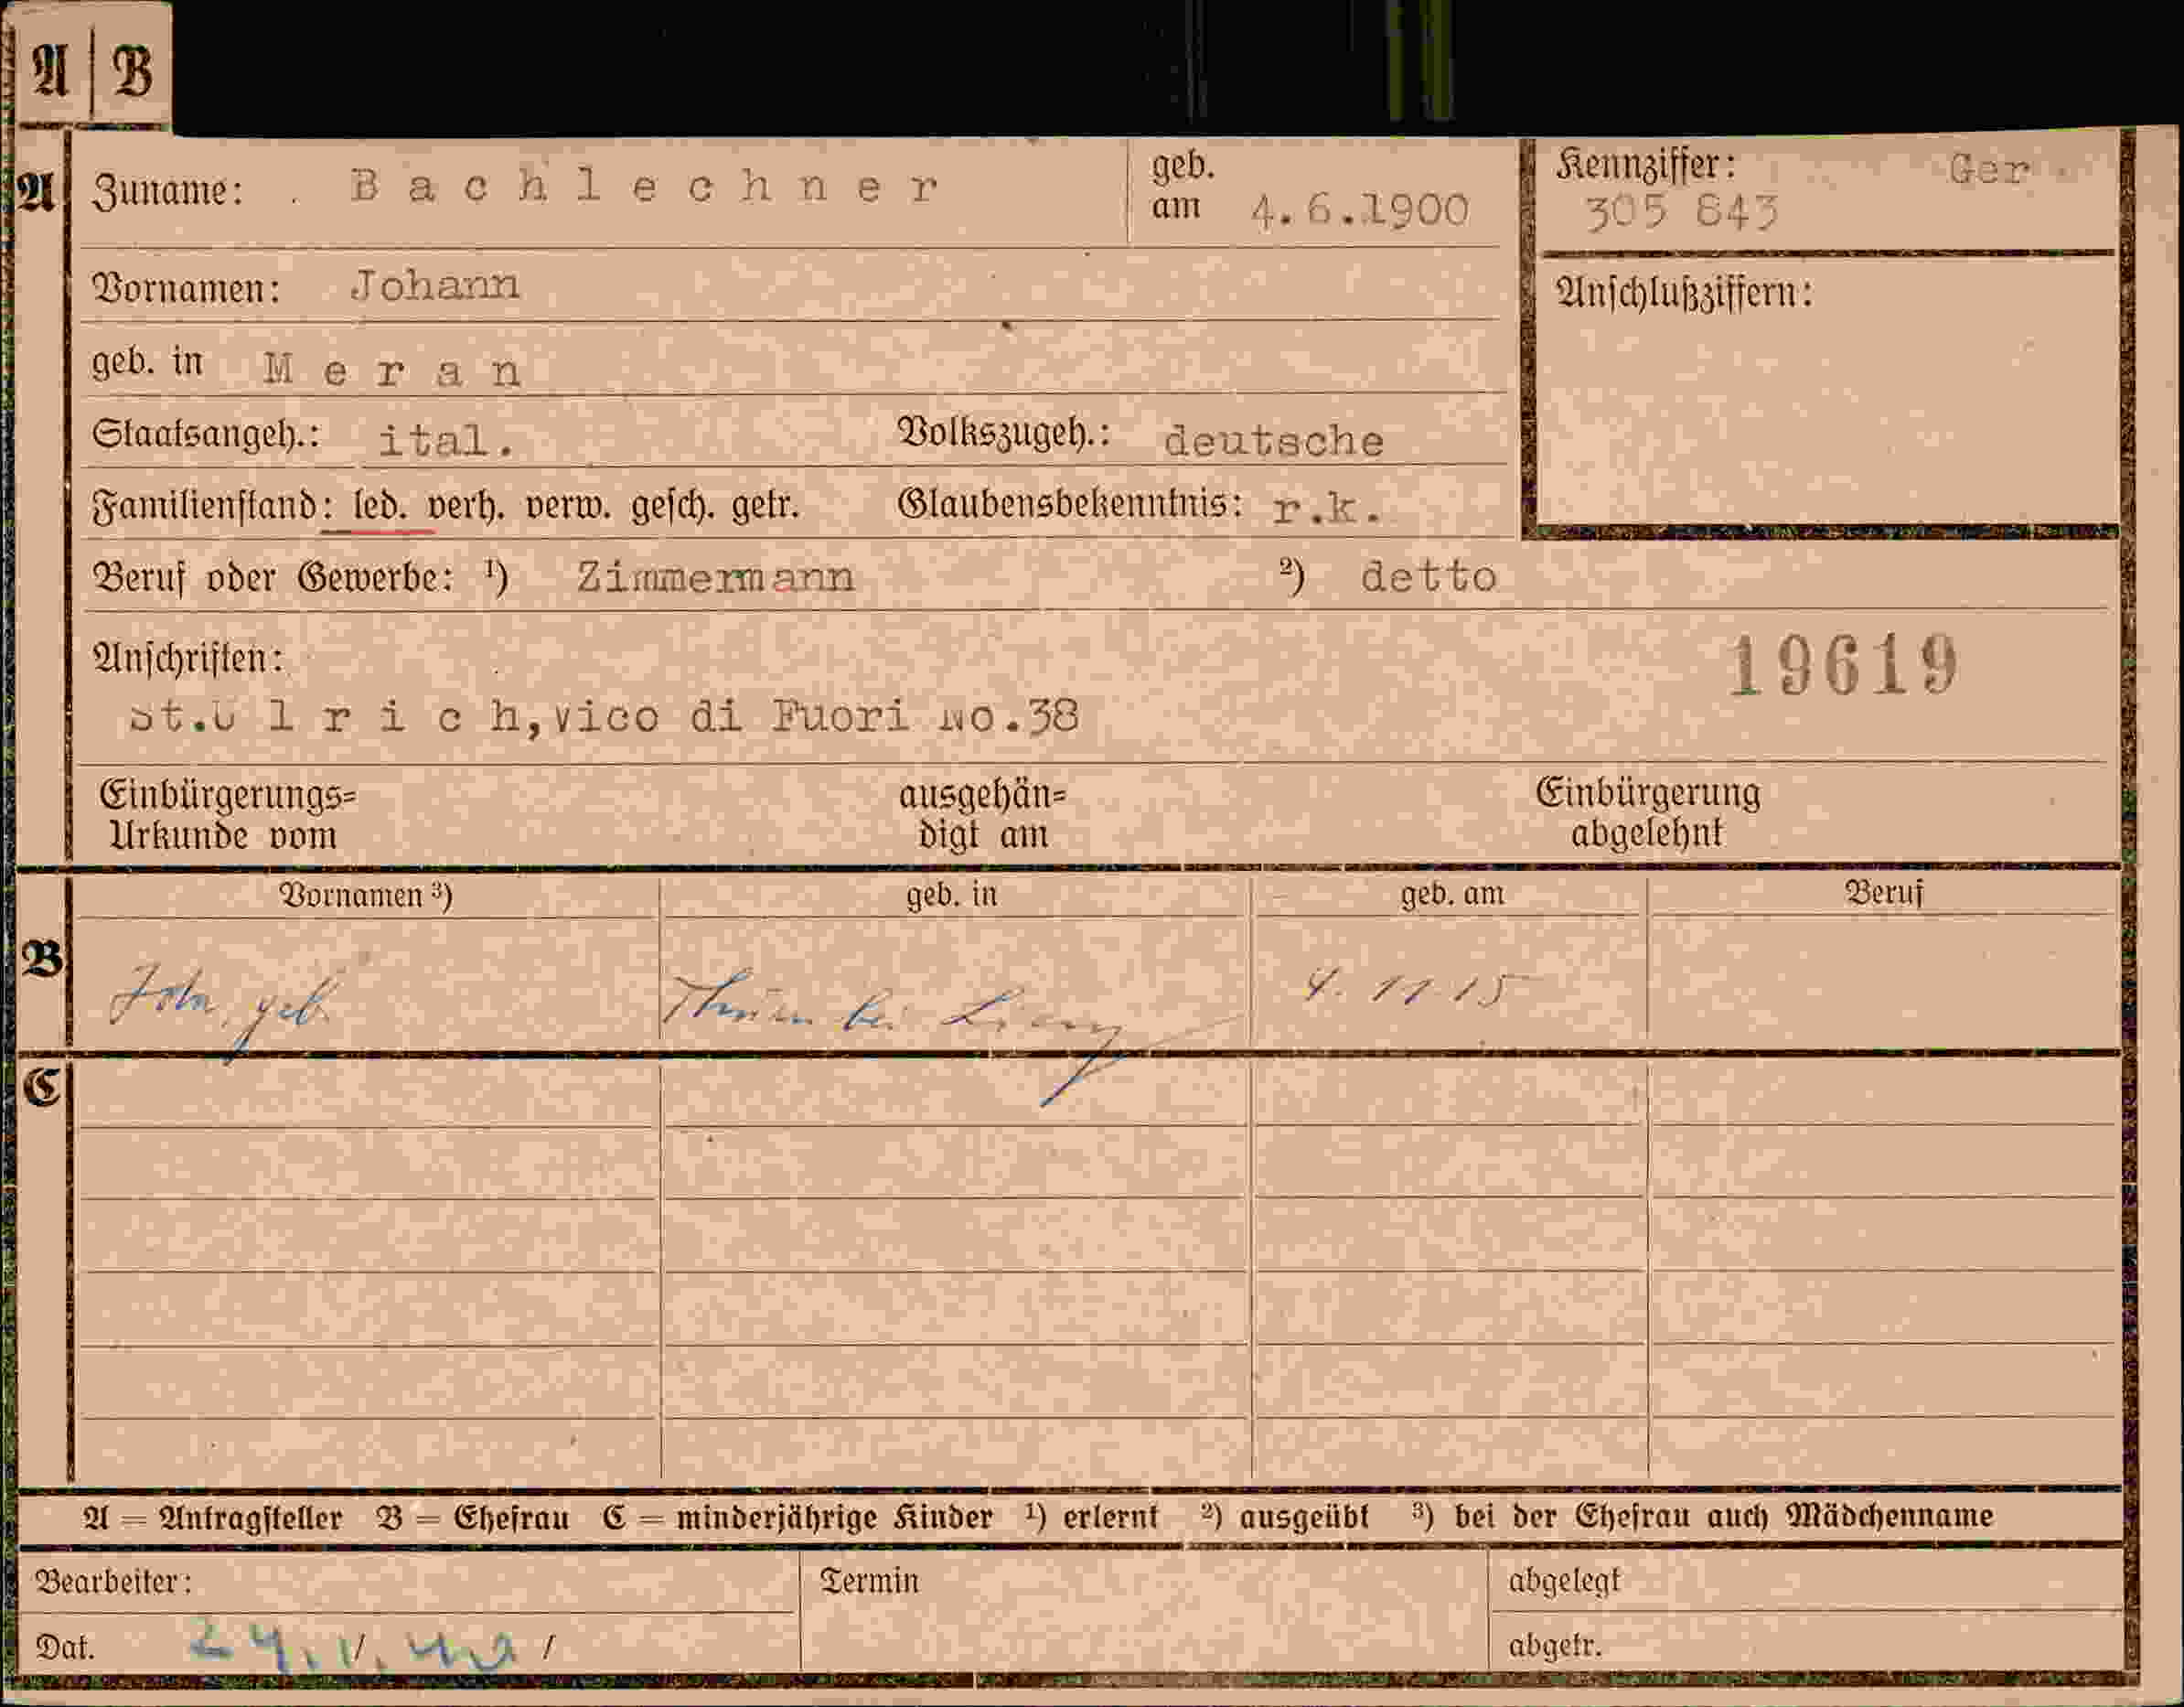 A | B
A Zuname: . Bachlechner geb. am 4.6.1900 Kennziffer: Ger
305 643
Vornamen: Johann Anschlußziffern:
geb. in Meran
Staatsangeh.: ital. Volkszugeh.: deutsche
Familienstand: led. verh. verw. gesch. getr. Glaubensbekenntnis: r.k.
Beruf oder Gewerbe: ¹) Zimmermann ²) detto
Anschriften: 19619
St.Ulrich, vico di Fuori No.38
Einbürgerungs= ausgehän= Einbürgerung
Urkunde vom digt am abgelehnt
Vornamen ³) geb. in geb. am Beruf
B geb. bei 4. 11. 15
C
A = Antragsteller B = Ehefrau C = minderjährige Kinder ¹) erlernt ²) ausgeübt ³) bei der Ehefrau auch Mädchenname
Bearbeiter: Termin abgelegt
Dat. abgetr.